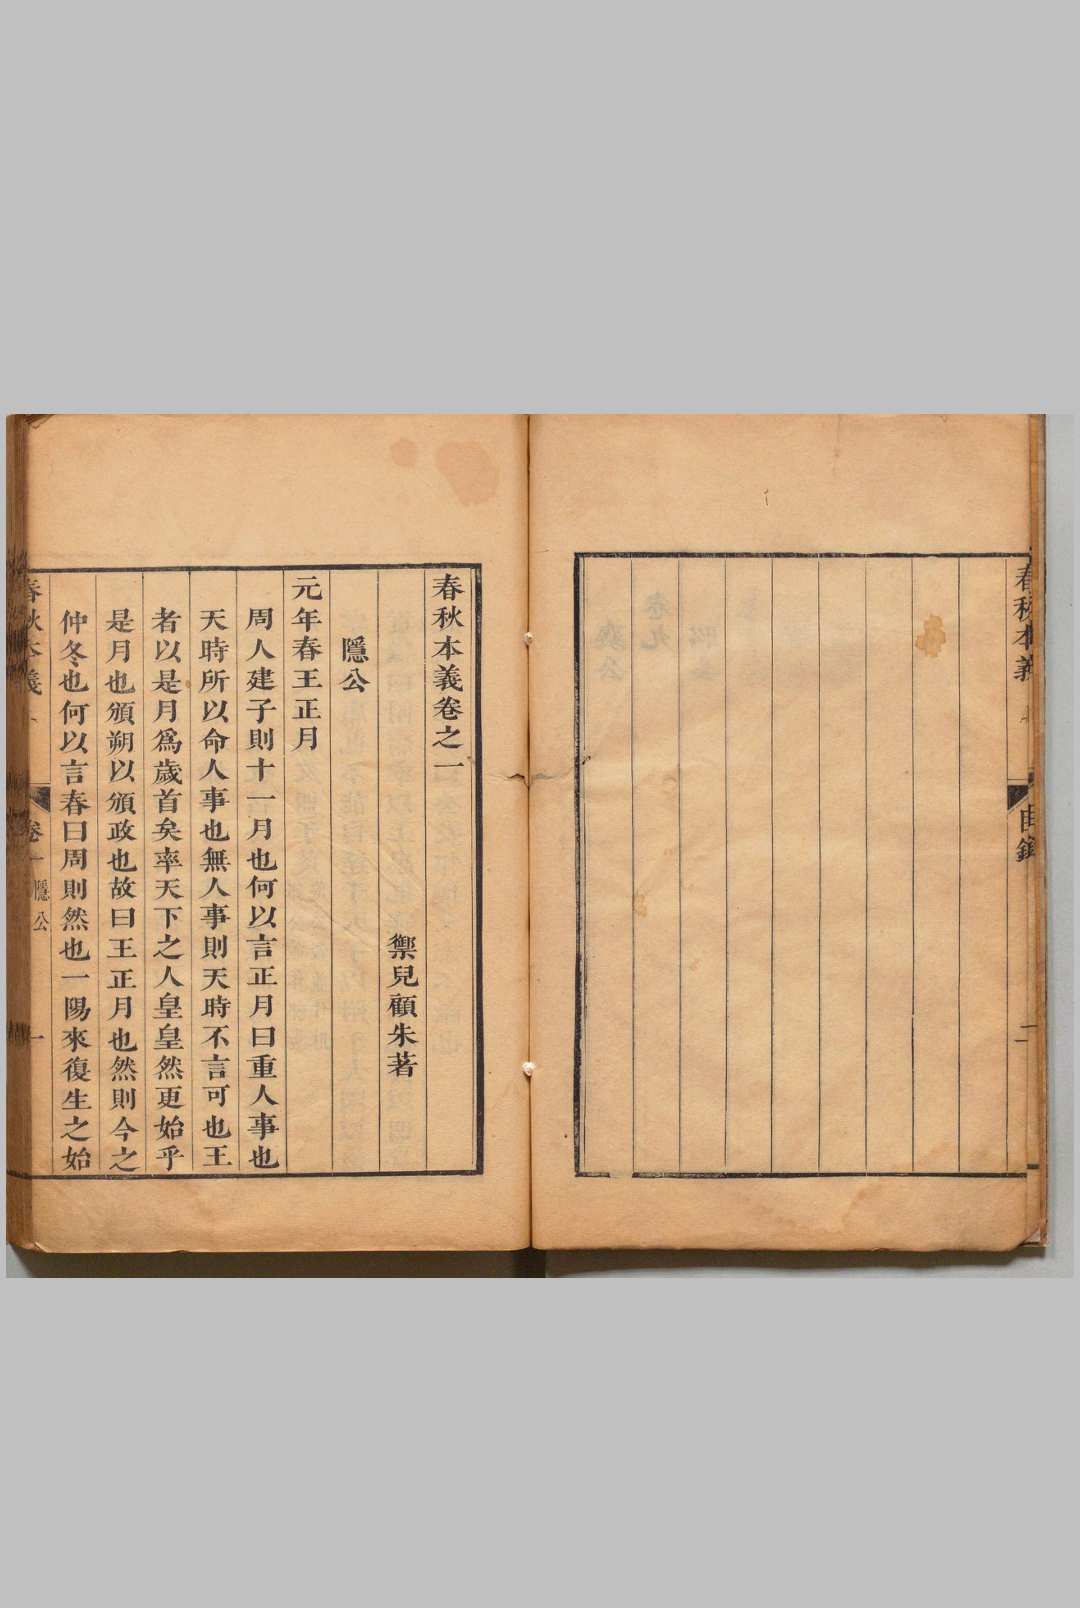 春秋本義
目錄
春秋本義卷之一
禦兒顧朱著
隱公
元年春王正月
周人建子則十一月也何以言正月曰重人事也
天時所以命人事也無人事則天時不言可也王
者以是月爲歲首矣率天下之人皇皇然更始乎
是月也頒朔以頒政也故曰王正月也然則今之
仲冬也何以言春曰周則然也一陽來復生之始
春秋本義
卷一
隱公
一